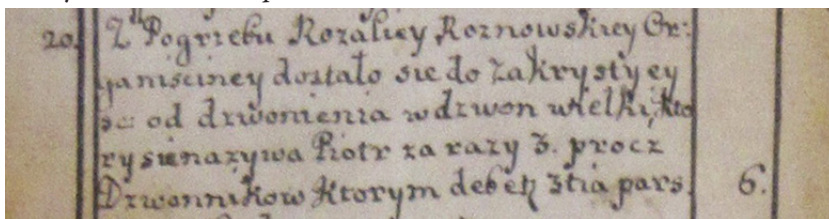 20. Z Pogrzebu Rozaliey Roznowskiey Or:
ganisciney dostało sie do Zakrystyey
od dzwonienia w dzwon wielki, kto
ry sie nazywa Piotr za razy 3. procz
Dzwonnikow Ktorym debet 3tia pars. 6.